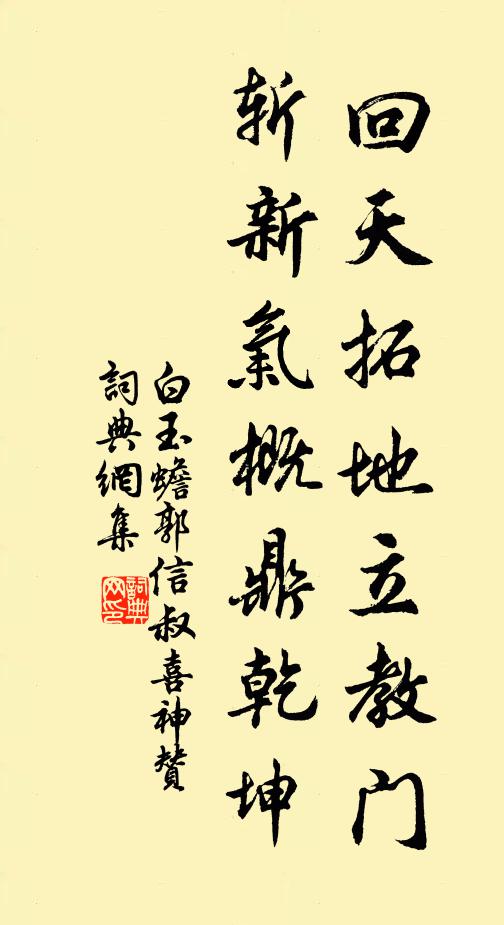 回天拓地立教門
斬新氣概鼎乾坤
白玉蟾郭信叔喜神贊
詞典網集
詞典網印